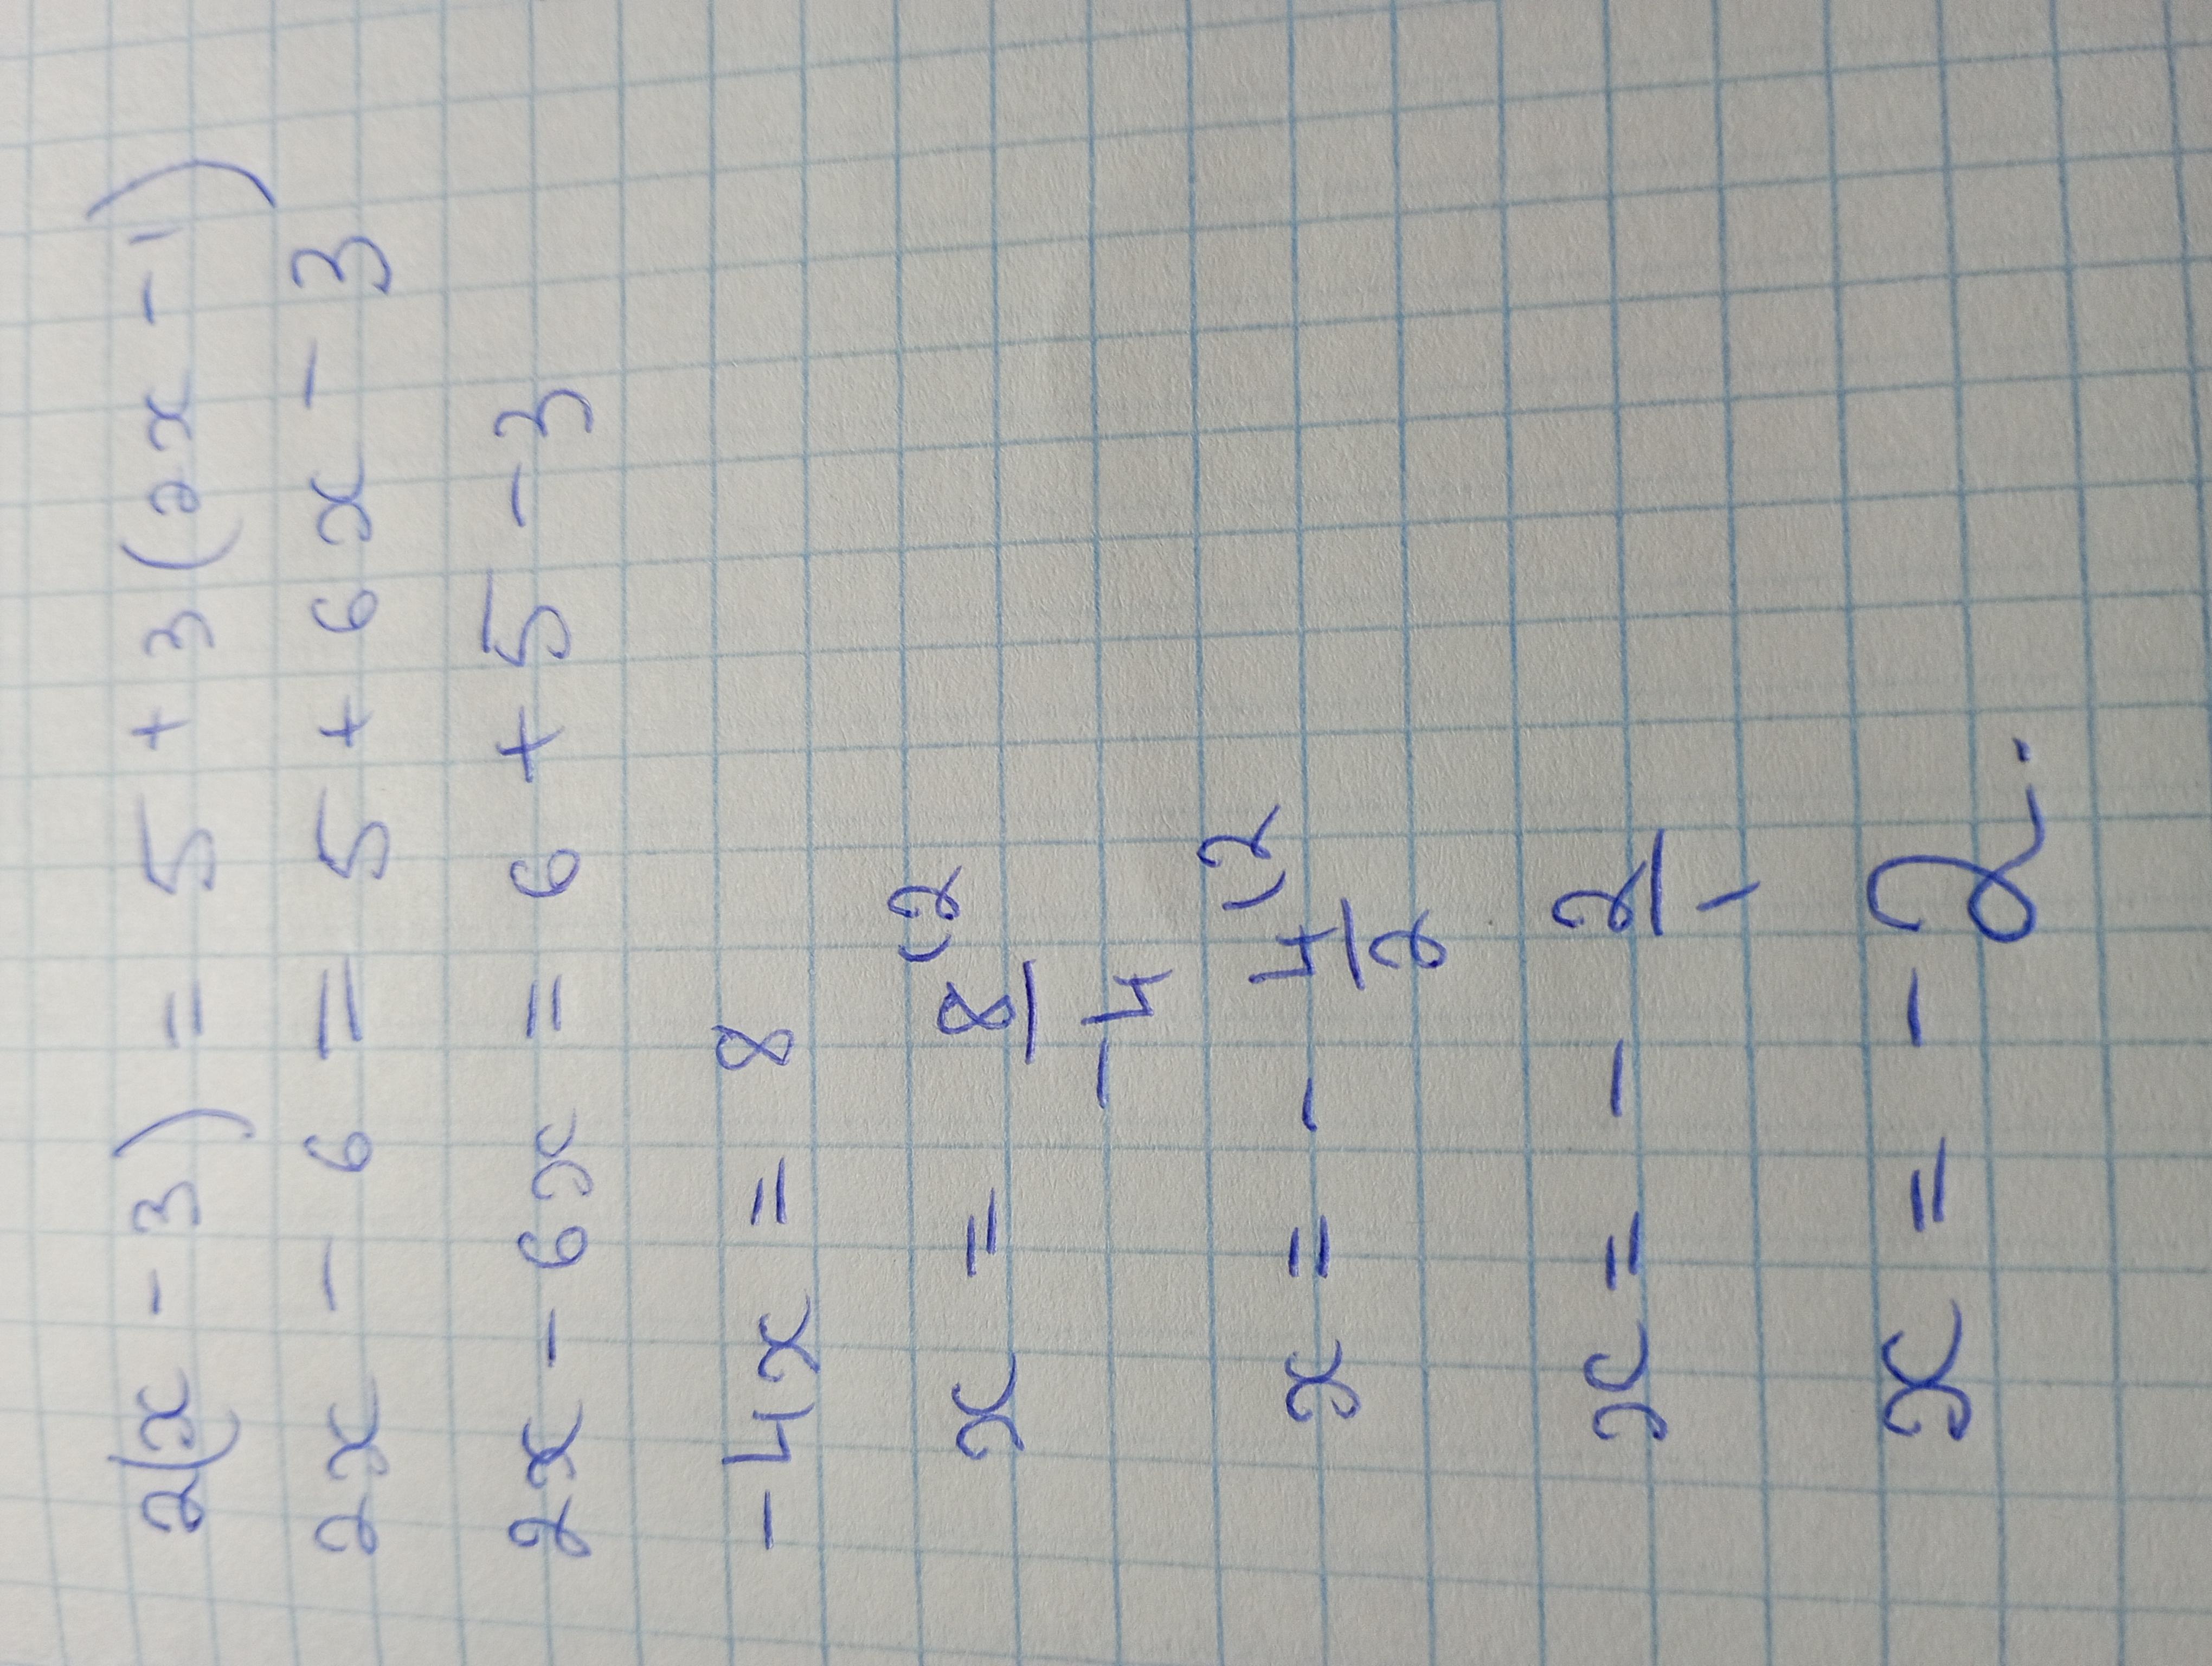 2(x - 3) = 5 + 3(2x - 1)
2x - 6 = 5 + 6x - 3
2x - 6x = 6 + 5 - 3
-4x = 8
x = 8/-4 (2
x = - 4/2 (2
x = - 2/1
x = - 2.